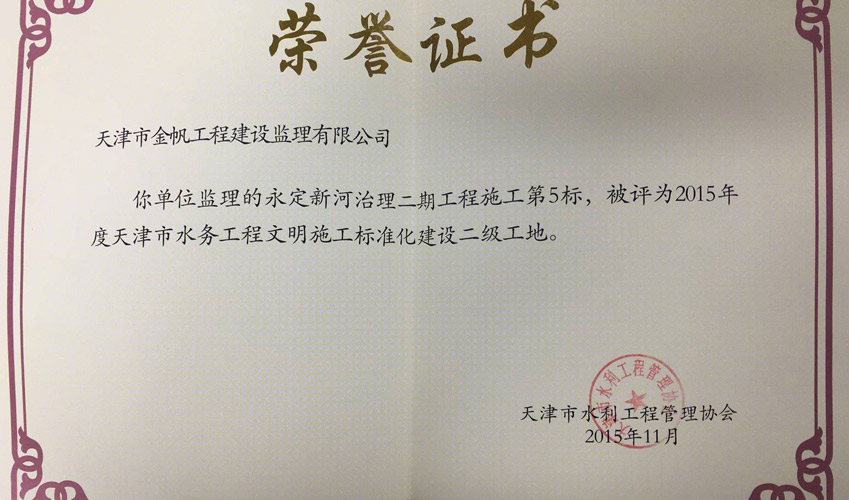 荣誉证书
天津市金帆工程建设监理有限公司
你单位监理的永定新河治理二期工程施工第5标，被评为2015年
度天津市水务工程文明施工标准化建设二级工地。
天津市水利工程管理协会
天津市水利工程管理协会
2015年11月